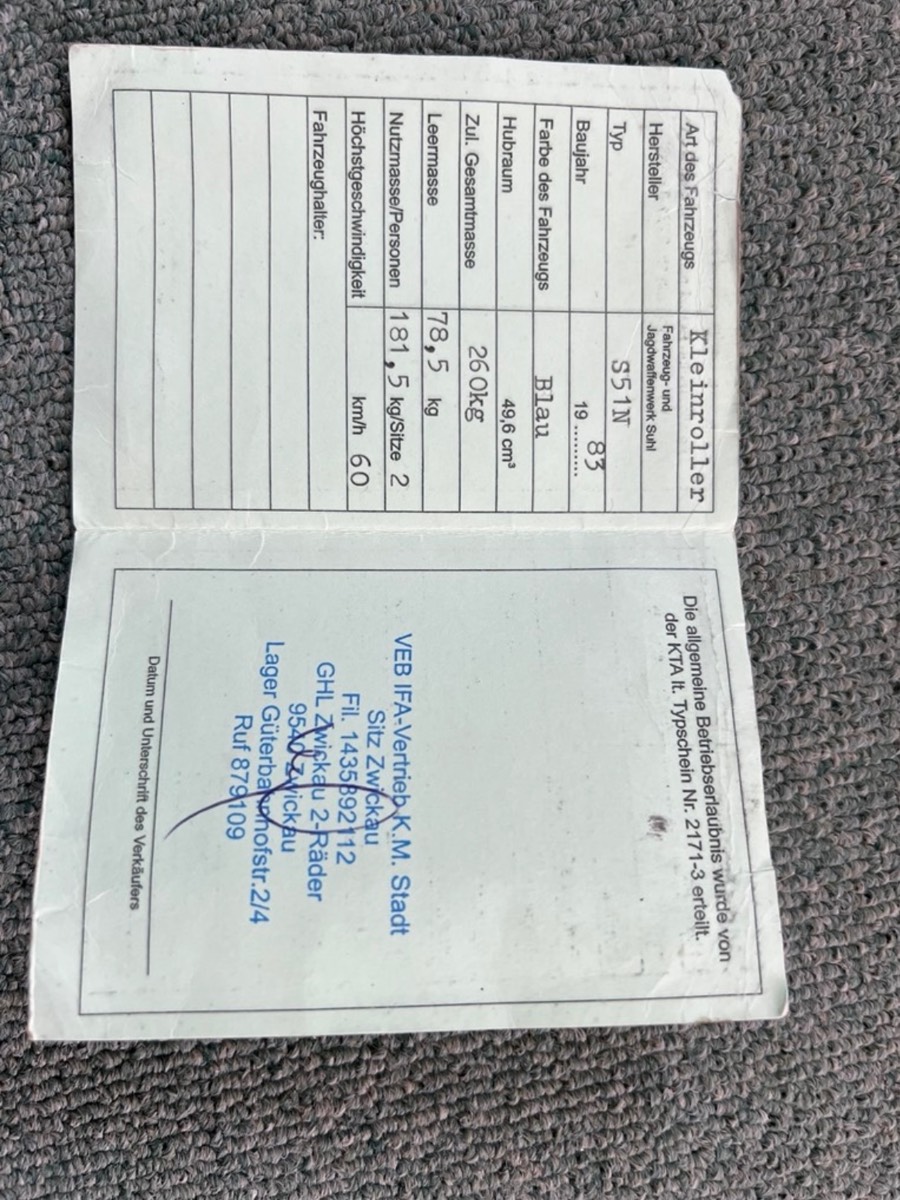 Art des Fahrzeugs Kleinroller
Hersteller Fahrzeug- und
Jagdwaffenwerk Suhl
Typ S51N
Baujahr 19 ......... 83
Farbe des Fahrzeugs Blau
Hubraum 49,6 cm³
Zul. Gesamtmasse 260kg
Leermasse 78,5 kg
Nutzmasse/Personen 181,5 kg/Sitze 2
Höchstgeschwindigkeit km/h 60
Fahrzeughalter:
Die allgemeine Betriebserlaubnis wurde von
der KTA lt. Typschein Nr. 2171-3 erteilt.
VEB IFA-Vertrieb K.M. Stadt
Sitz Zwickau
Fil. 1435892112
GHL Zwickau 2-Räder
Zwickau
Lager Güterbahnhofstr.2/4
Ruf 879109
Datum und Unterschrift des Verkäufers